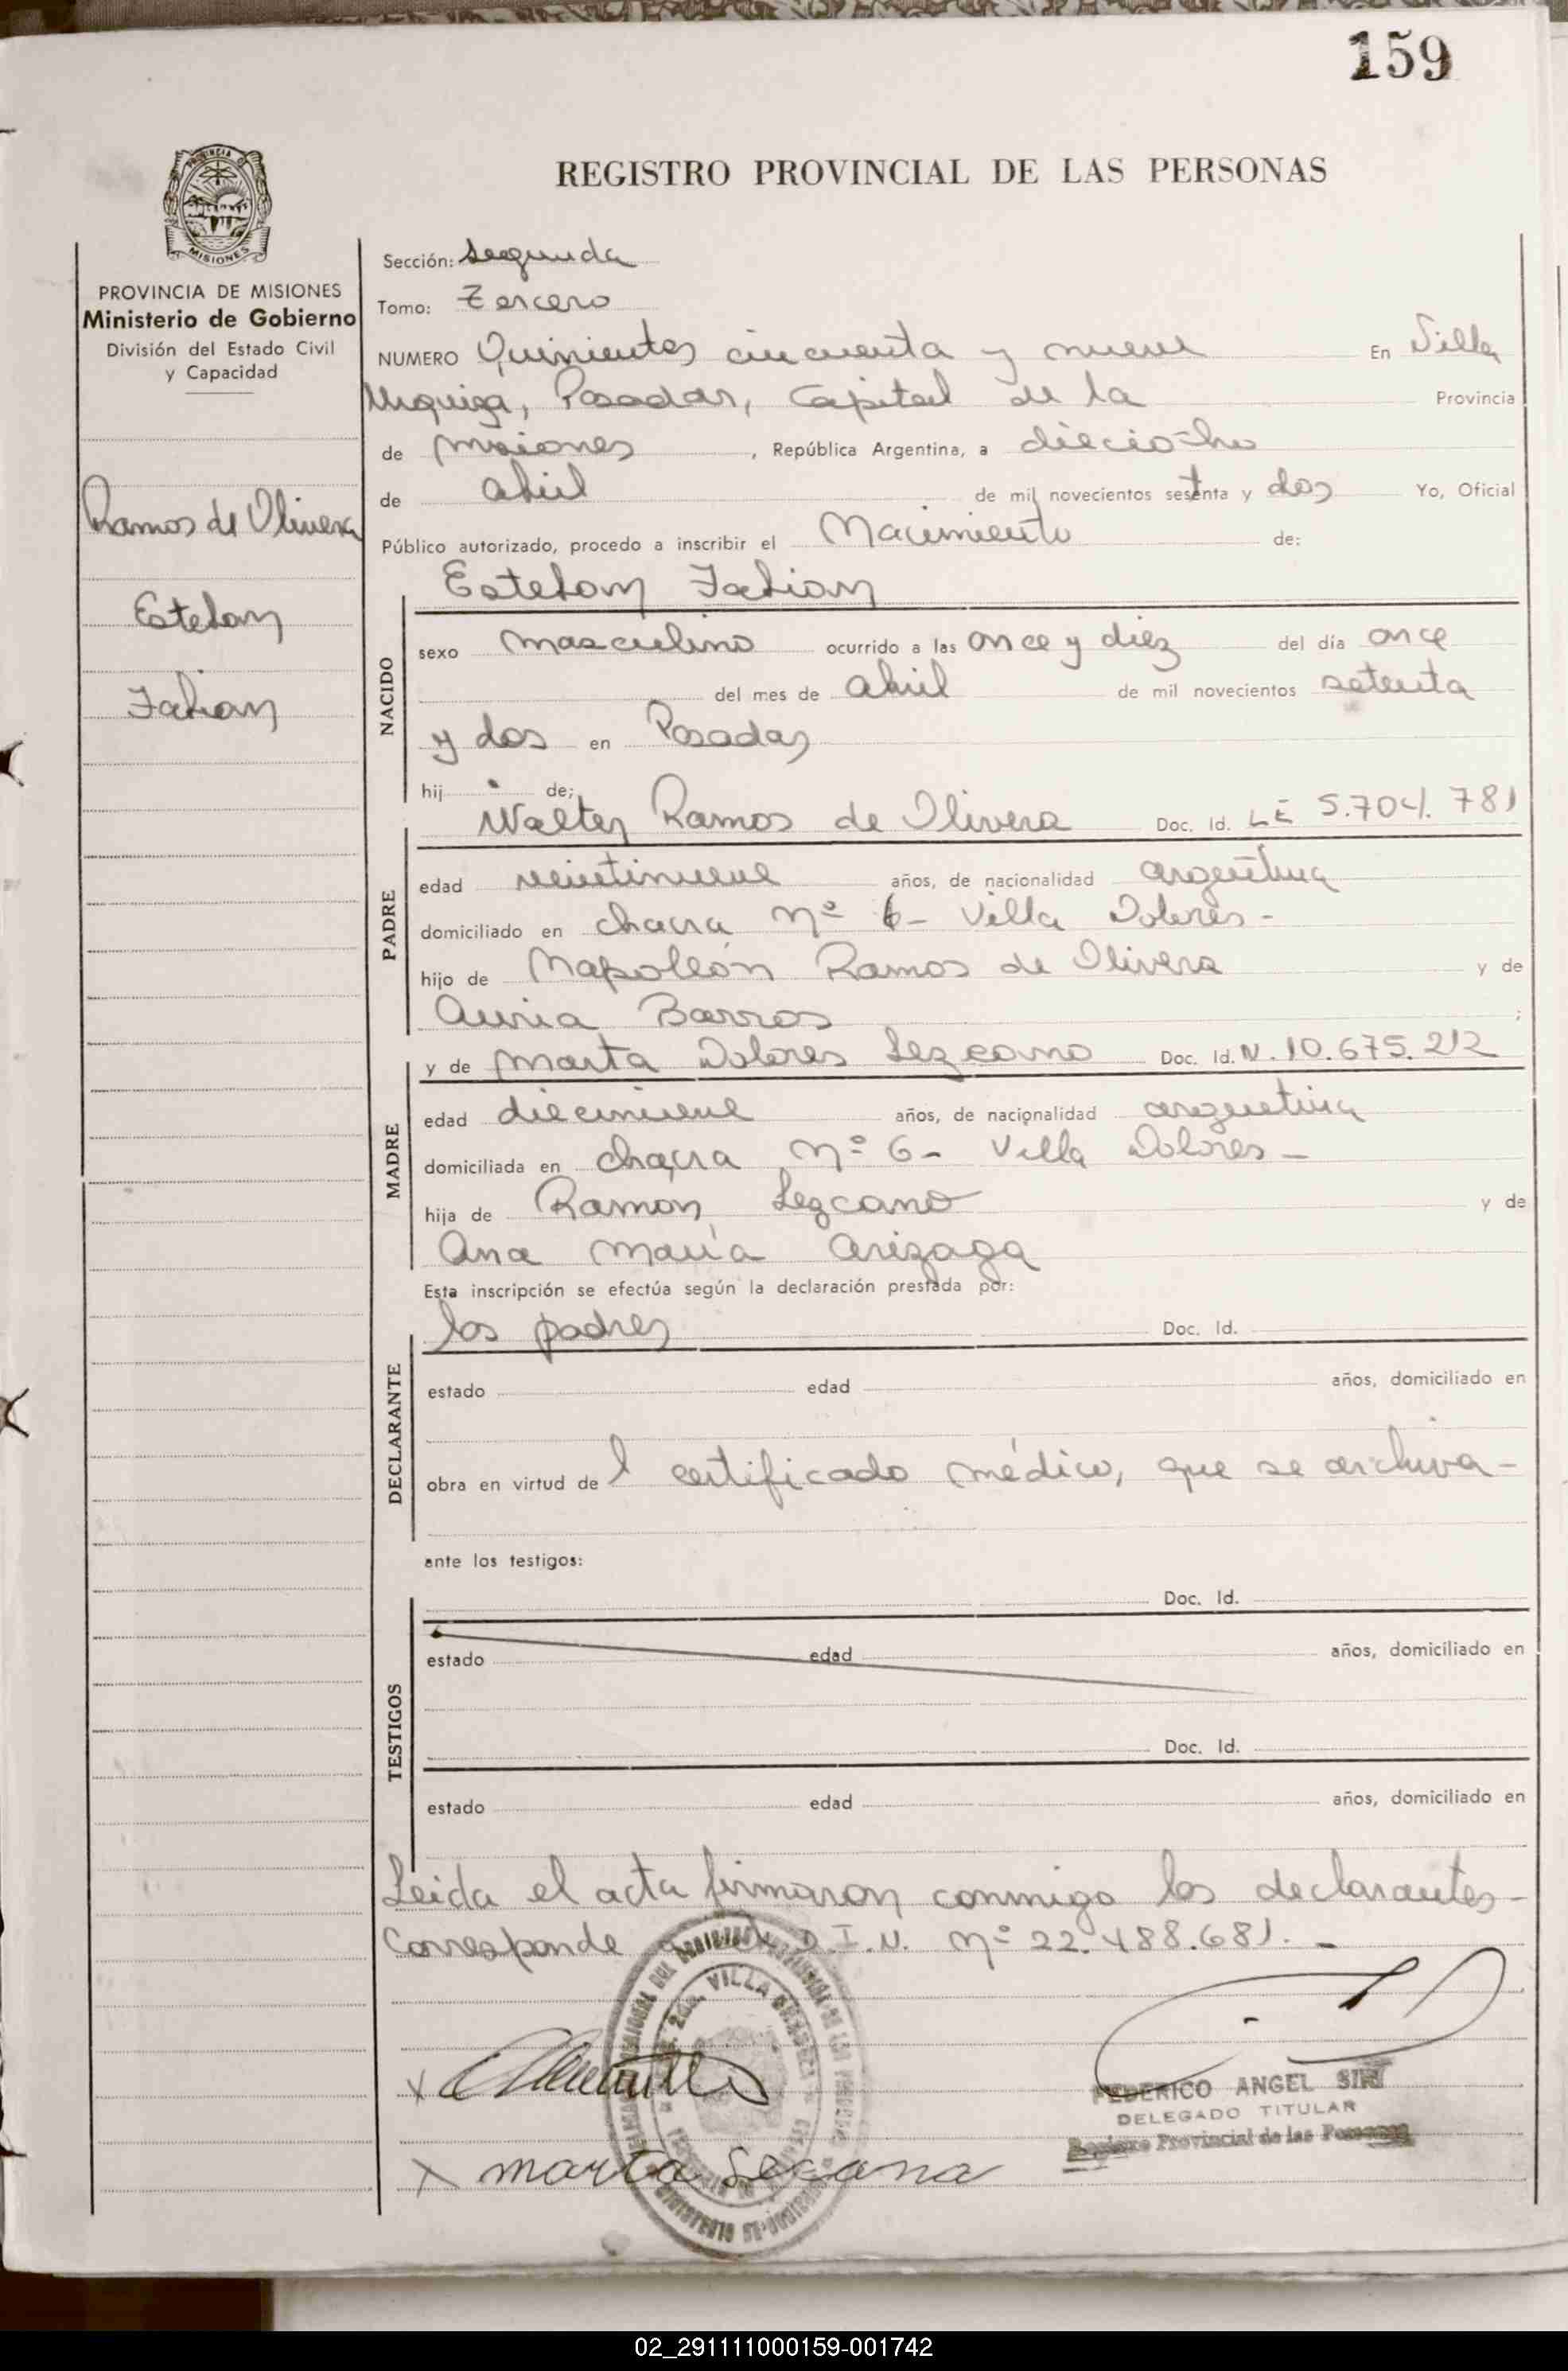 159
PROVINCIA DE
MISIONES
PROVINCIA DE MISIONES
Ministerio de Gobierno
División del Estado Civil
y Capacidad
Ramos de Olivera
Esteban
Fabian
REGISTRO PROVINCIAL DE LAS PERSONAS
Sección: Segunda
Tomo: Tercero
NUMERO Quinientos cincuenta y nueve En Villa
Urquiza, Posadas, Capital de la Provincia
de Misiones, República Argentina, a dieciocho
de abril de mil novecientos setenta y dos Yo, Oficial
Público autorizado, procedo a inscribir el Nacimiento de:
Esteban Fabian
NACIDO
sexo masculino ocurrido a las once y diez del día once
del mes de abril de mil novecientos setenta
y dos en Posadas
hij de;
Walter Ramos de Olivera Doc. Id. LE 5.704.781
PADRE
edad veintinueve años, de nacionalidad argentina
domiciliado en chacra Nº 6- Villa Dolores-
hijo de Napoleón Ramos de Olivera y de
Auria Barros ;
y de Marta Dolores Lezcano Doc. Id. N. 10.675.212
MADRE
edad diecinueve años, de nacionalidad argentina
domiciliada en chacra Nº 6- Villa Dolores-
hija de Ramon Lezcano y de
Ana María Arizaga
Esta inscripción se efectúa según la declaración prestada por:
los padres Doc. Id.
DECLARANTE
estado edad años, domiciliado en
obra en virtud del certificado médico, que se archiva-
ante los testigos:
Doc. Id.
TESTIGOS
estado edad años, domiciliado en
Doc. Id.
estado edad años, domiciliado en
Leida el acta firmaron conmigo los declarantes-
Corresponde D.I.N. Nº 22.488.681.-
VILLA
x
x marta Lescana
FEDERICO ANGEL SIRI
DELEGADO TITULAR
Registro Provincial de las Personas
02_291111000159-001742